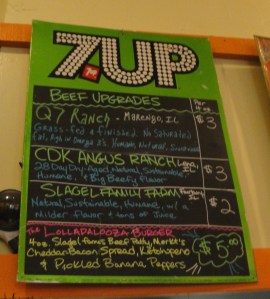 7UP
7UP
BEEF UPGRADES
Q7 Ranch - MARENGO, IL $3
Grass-fed & finished. No Saturated
Fat, High in Omega 3's. Human, Natural, Sustainable
CDK ANGUS RANCH $3
28 Day Dry-Aged, Natural, Sustainable,
Humane, + Big Beefy Flavor
SLAGEL FAMILY FARM $2
Natural, Sustainable, Humane, w/ a
Milder flavor + tons of Juice
The LOLLAPALOOZA BURGER
4oz. Slagel farms Beef Patty, Merkt's
Cheddar Bacon Spread, Ketchupeno
& Pickled Banana Peppers
$5.00